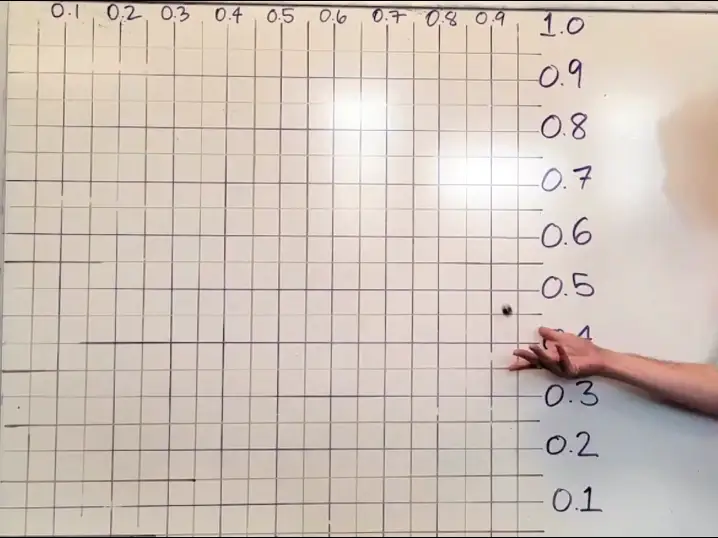 0.1 0.2 0.3 0.4 0.5 0.6 0.7 0.8 0.9
1.0
0.9
0.8
0.7
0.6
0.5
0.3
0.2
0.1